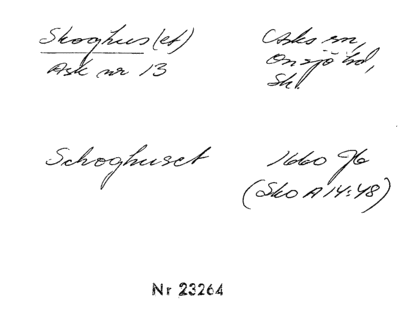 Skoghus(et)
Ask nr 13
Asks sn,
Onsjö hd,
Sk.
Schoghuset
1660 Jb
(Sko A 14:48)
Nr 23264